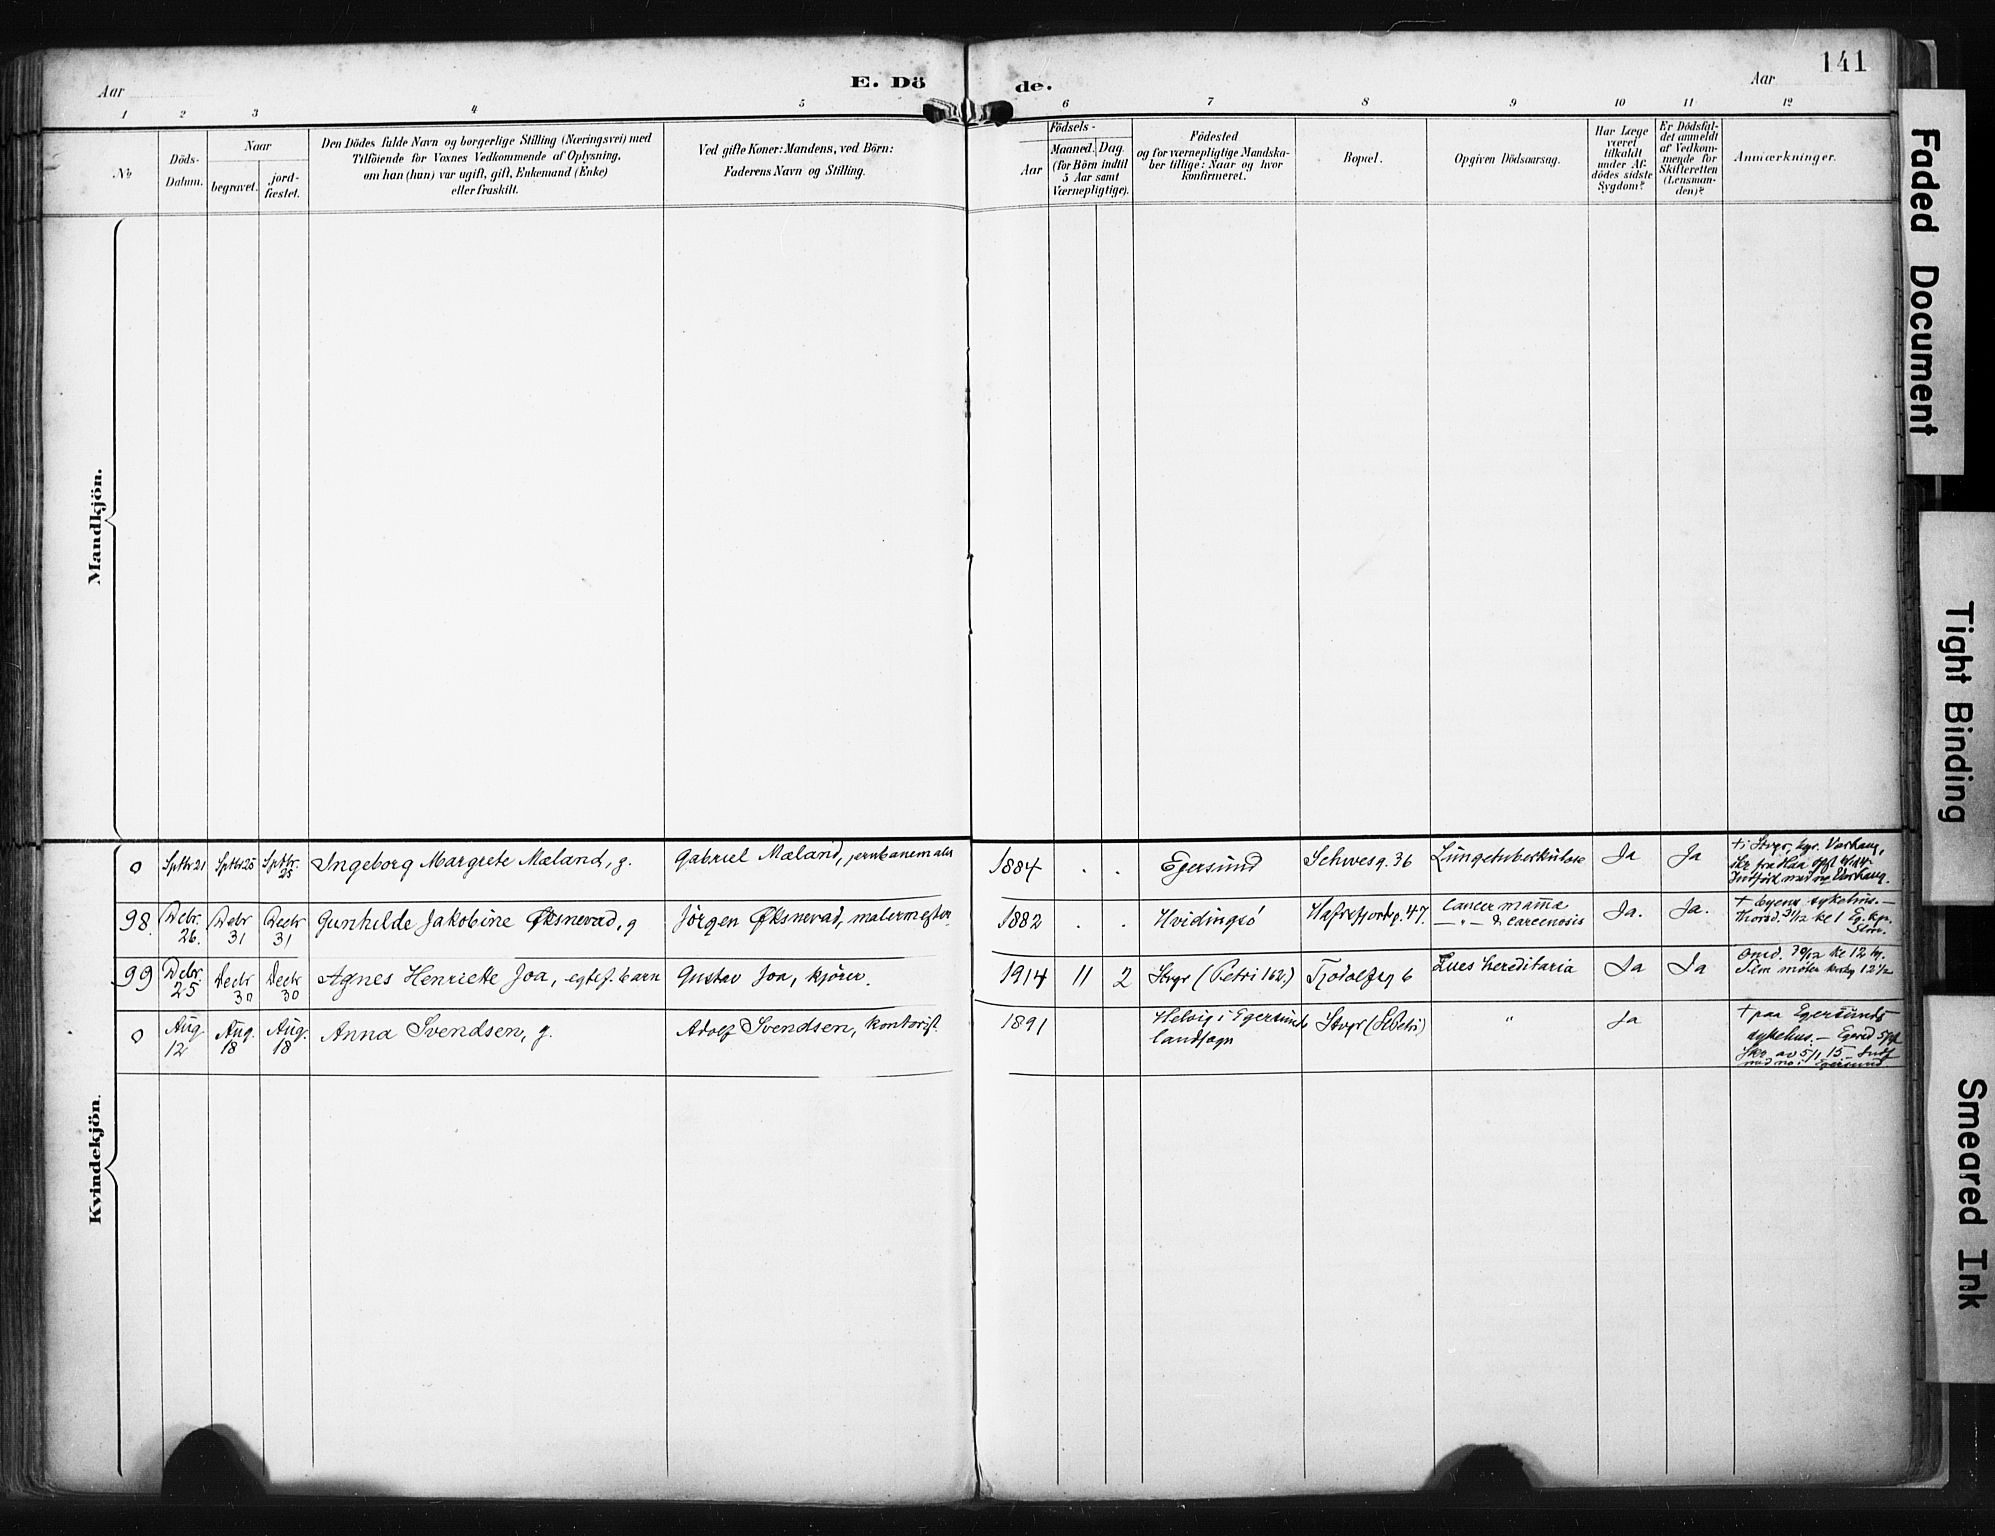 Aar
E. Dö
de.
Aar
141
1 2 3 4 5 6 7 8 9 10 11 12
No
Döds-
Datum.
Naar
begravet.
jord-
fæstet.
Den Dödes fulde Navn og borgerlige Stilling (Næringsvei) med
Tilföiende for Voxnes Vedkommende af Oplysning,
om han (hun) var ugift, gift, Enkemand (Enke)
eller fraskilt.
Ved gifte Koner: Mandens, ved Börn:
Faderens Navn og Stilling.
Födsels-
Aar
Maaned. Dag.
(for Börn indtil
5 Aar samt
Værnepligtige).
Födested
og for værnepligtige Mandska-
ber tillige: Naar og hvor
konfirmeret.
Bopæl.
Opgiven Dödsaarsag.
Har Læge
været
tilkaldt
under Af-
dödes sidste
Sygdom?
Er Dödsfal-
det anmeldt
af Vedkom-
mende for
Skifteretten
(Lensman-
den)?
Anmærkninger.
Mandkjön.
Kvindekjön.
0 Sptbr 21 Sptbr 25 Sptbr. 25 Ingeborg Margrete Mæland, g. Gabriel Mæland, 1884 . . Egersund 36 Lungetuberkulose Ja Ja
98. Debr. 26. Debr 31 Decbr 31 Gunhilde Jakobine Øksnevad, g Jörgen Øksnevad, malermester. 1882 . . Hvidingsö Hafrsfjordsg. 47. Cancer mamma
— " — & carcenosis Ja. Ja. + byens sykehus. —
99 Debr. 25 Decbr 30 Decbr 30 Agnes Henriette Joa, egtef. barn Gustav Joa, kjörer. 1914 11 2 Stvgr (Petri 162.) Tjodolfsg 6 Lues hereditaria Ja Ja Omd. 30/12 kl 12
0 Aug 12 Aug. 18 Aug. 18 Anna Svendsen, g. Adolf Svendsen, kontorist. 1891 Helvig i Egersunds
landsogn Stvgr (St Petri) " Ja + paa Egersunds
sykehus. —
av 5/1 15 —
Egersund
Faded Document
Tight Binding
Smeared Ink